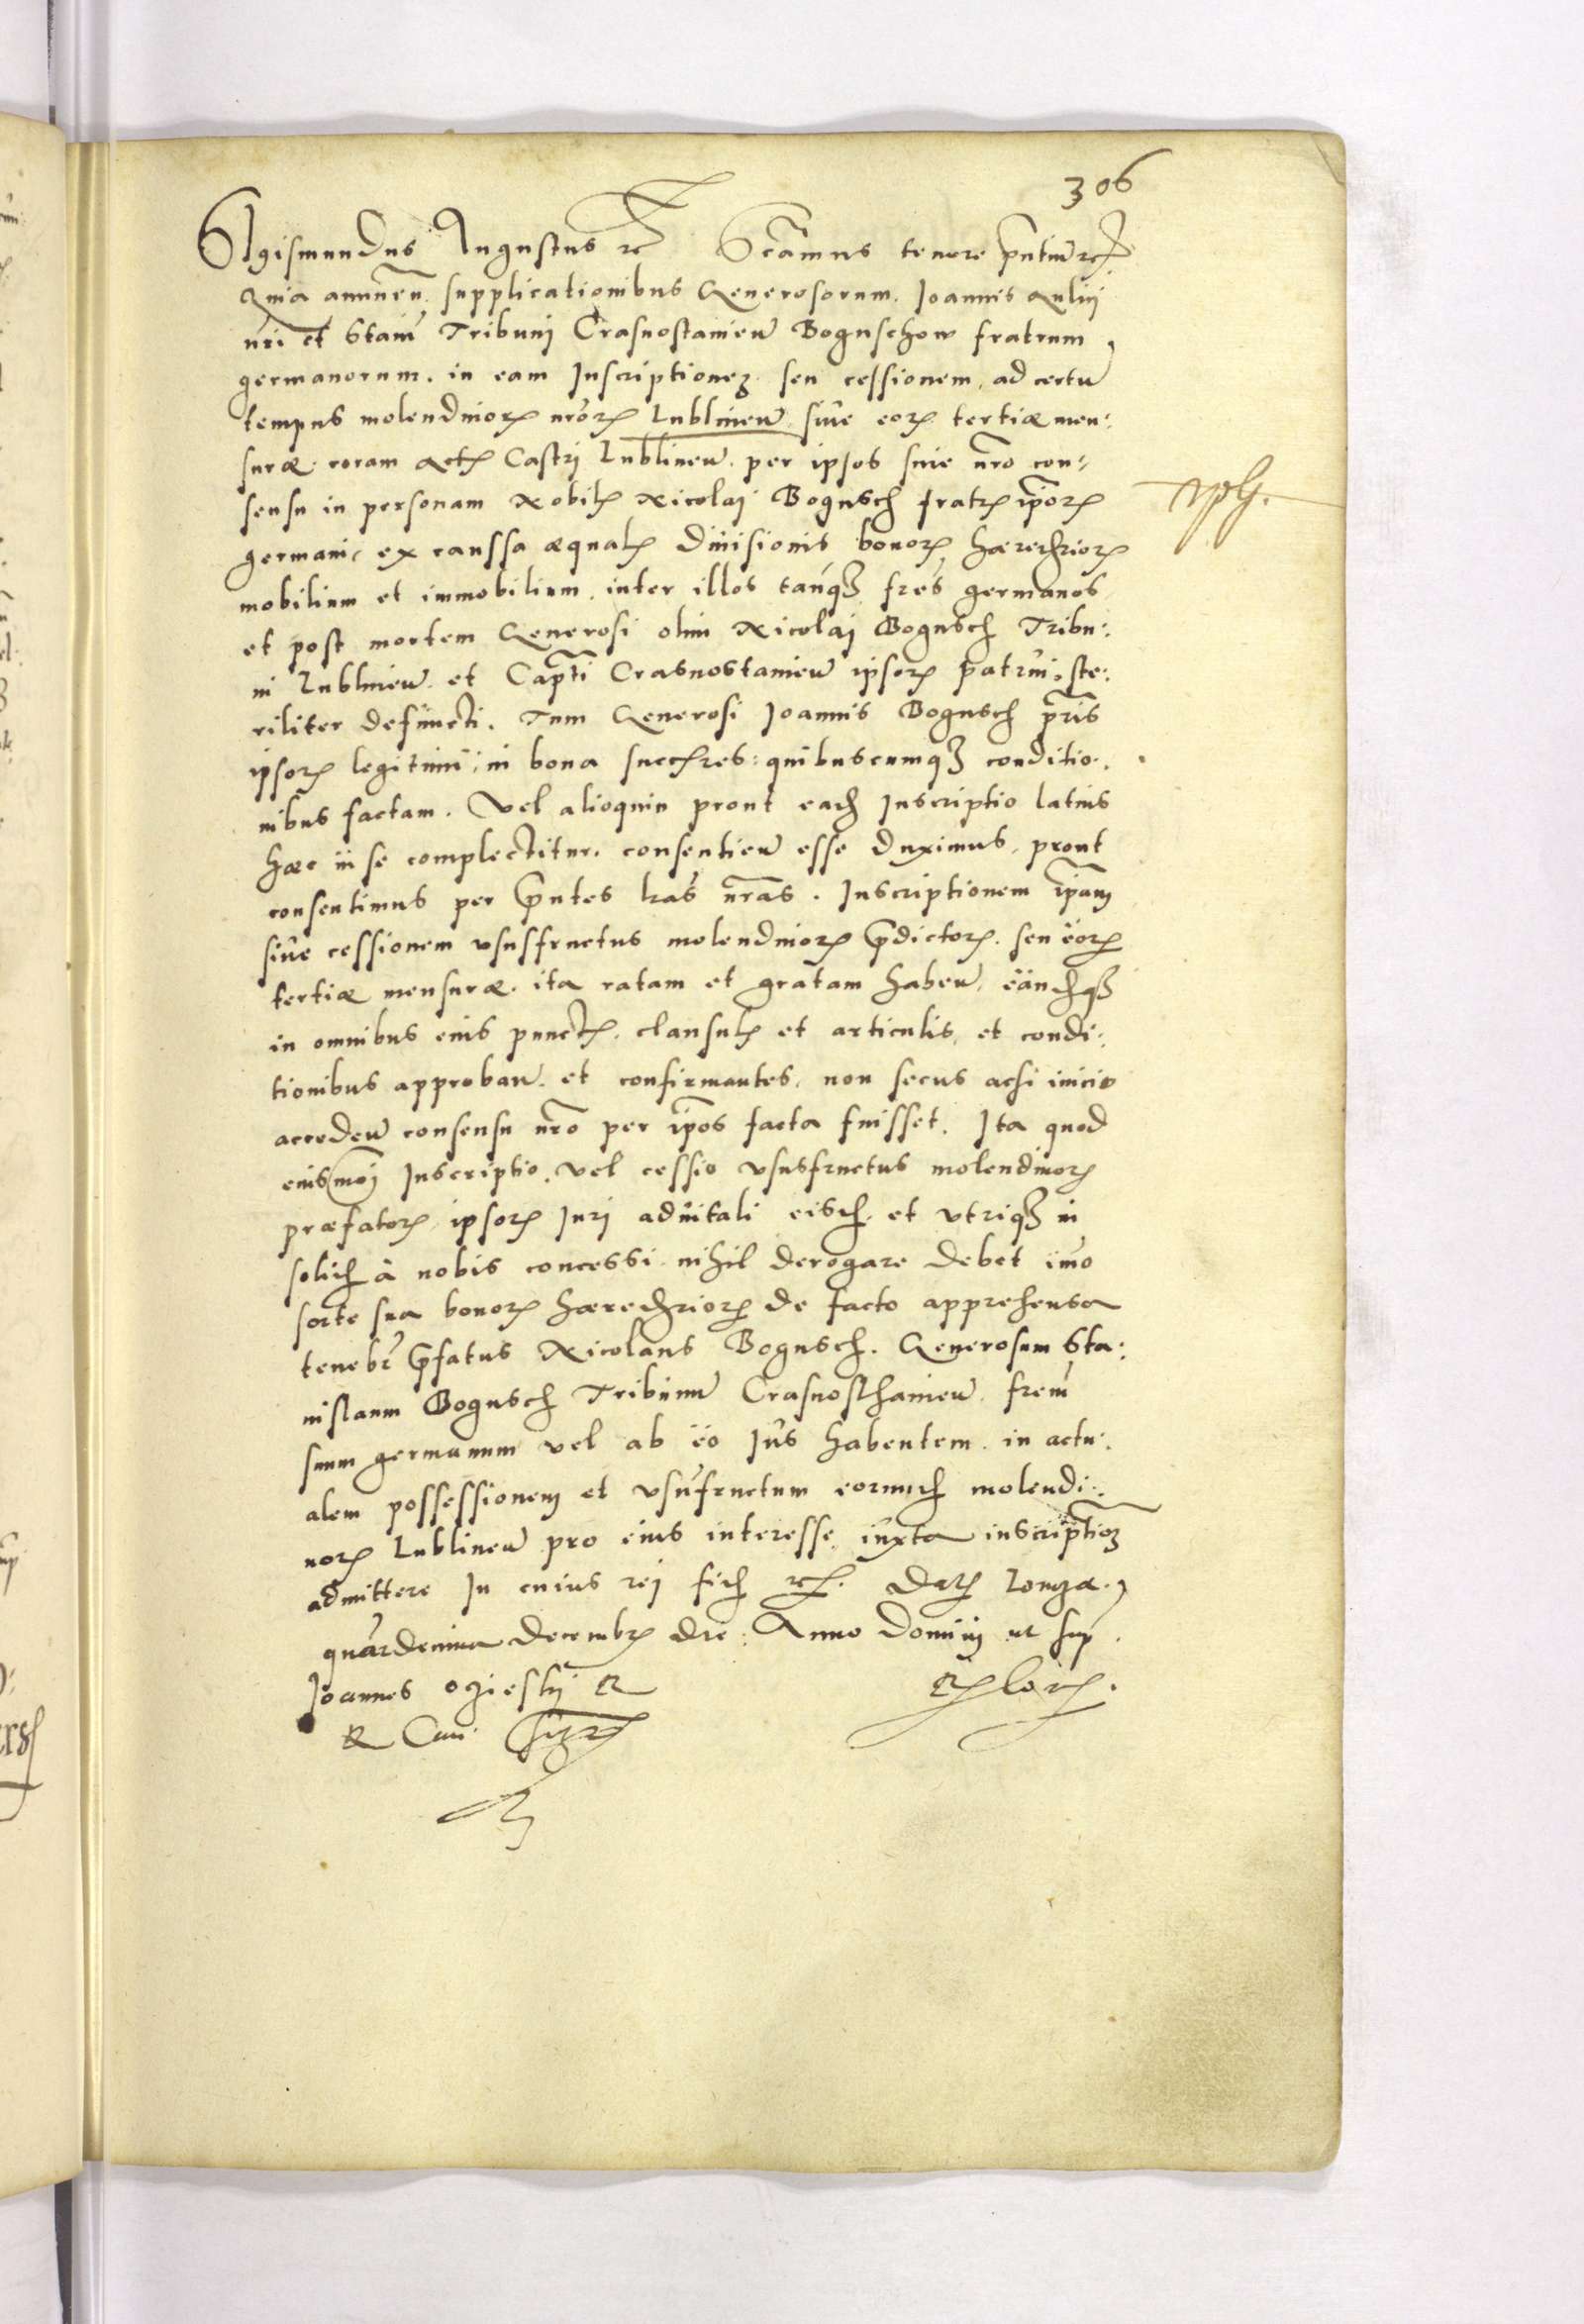 306
Sigismundus Augustus rc Sctamus tenore pntiu rc
Quia annuen supplicationibus Generosorum. Joannis Aulici
nri et Stani Tribunj Crasnostanien Boguschow fratrum
germanorum. in eam Inscriptionem seu cessionem, ad certu
tempus molendinor nror Lublinen. siue eor tertiæ men:
suræ coram actis Castrj Lublinen. per ipsos sine nro con:
sensu in personam Nobilis Nicolaj Bogusch fratris ipor
germani, ex caussa æqualis diuisionis bonor hæredrior
mobilium et immobilium. inter illos tanq fres germanos
et post mortem Generosi olim Nicolaj Bogusch Tribu:
ni Lublinen. et Capti Crasnostanien ipsor patrui ste:
riliter defuncti. Tum Generosi Joannis Bogusch pris
ipsor legitimi; in bona succres: quibuscumq conditio:
nibus factam. Vel alioquin prout ead Inscriptio latius
hæc in se complectitur. consentien esse duximus, prout
consentimus per pntes lras nras. Inscriptionem ipam
siue cessionem vsusfructus molendinor pdictor. seu eor
tertiæ mensuræ. ita ratam et gratam haben. eandq
in omnibus eius punctis. clausulis et articulis, et condi:
tionibus approban. et confirmantes, non secus acsi inicio
acceden consensu nro per ipos facta fuisset. Ita quod
eiusmoj Inscriptio. vel cessio vsusfructus molendinor
præfator, ipsor Jurj aduitali eisd. et vtriq in
solid à nobis concessi. nihil derogare debet imo
sorte sua bonor hæredrior de facto apprehensa
tenebr pfatus Nicolaus Bogusch. Generosum Sta:
nislaum Bogusch Tribunu Crasnosthanien. frem
suum germanum vel ab eo Jus habentem. in actu:
alem possessionem et vsufructum eorund molendi:
nor Lublinen pro eius interesse, iuxta inscriptiom
admittere In cuius rej fid rc. Dat Lomzæ.
quardecima Decembris die: Anno Dominj ut sup.
Joannes Oczieskij R
R Can